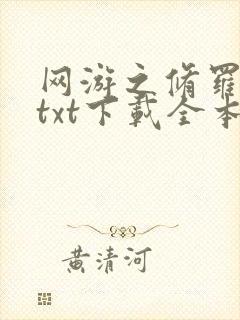 网游之修罗
txt下载全本
黄清河